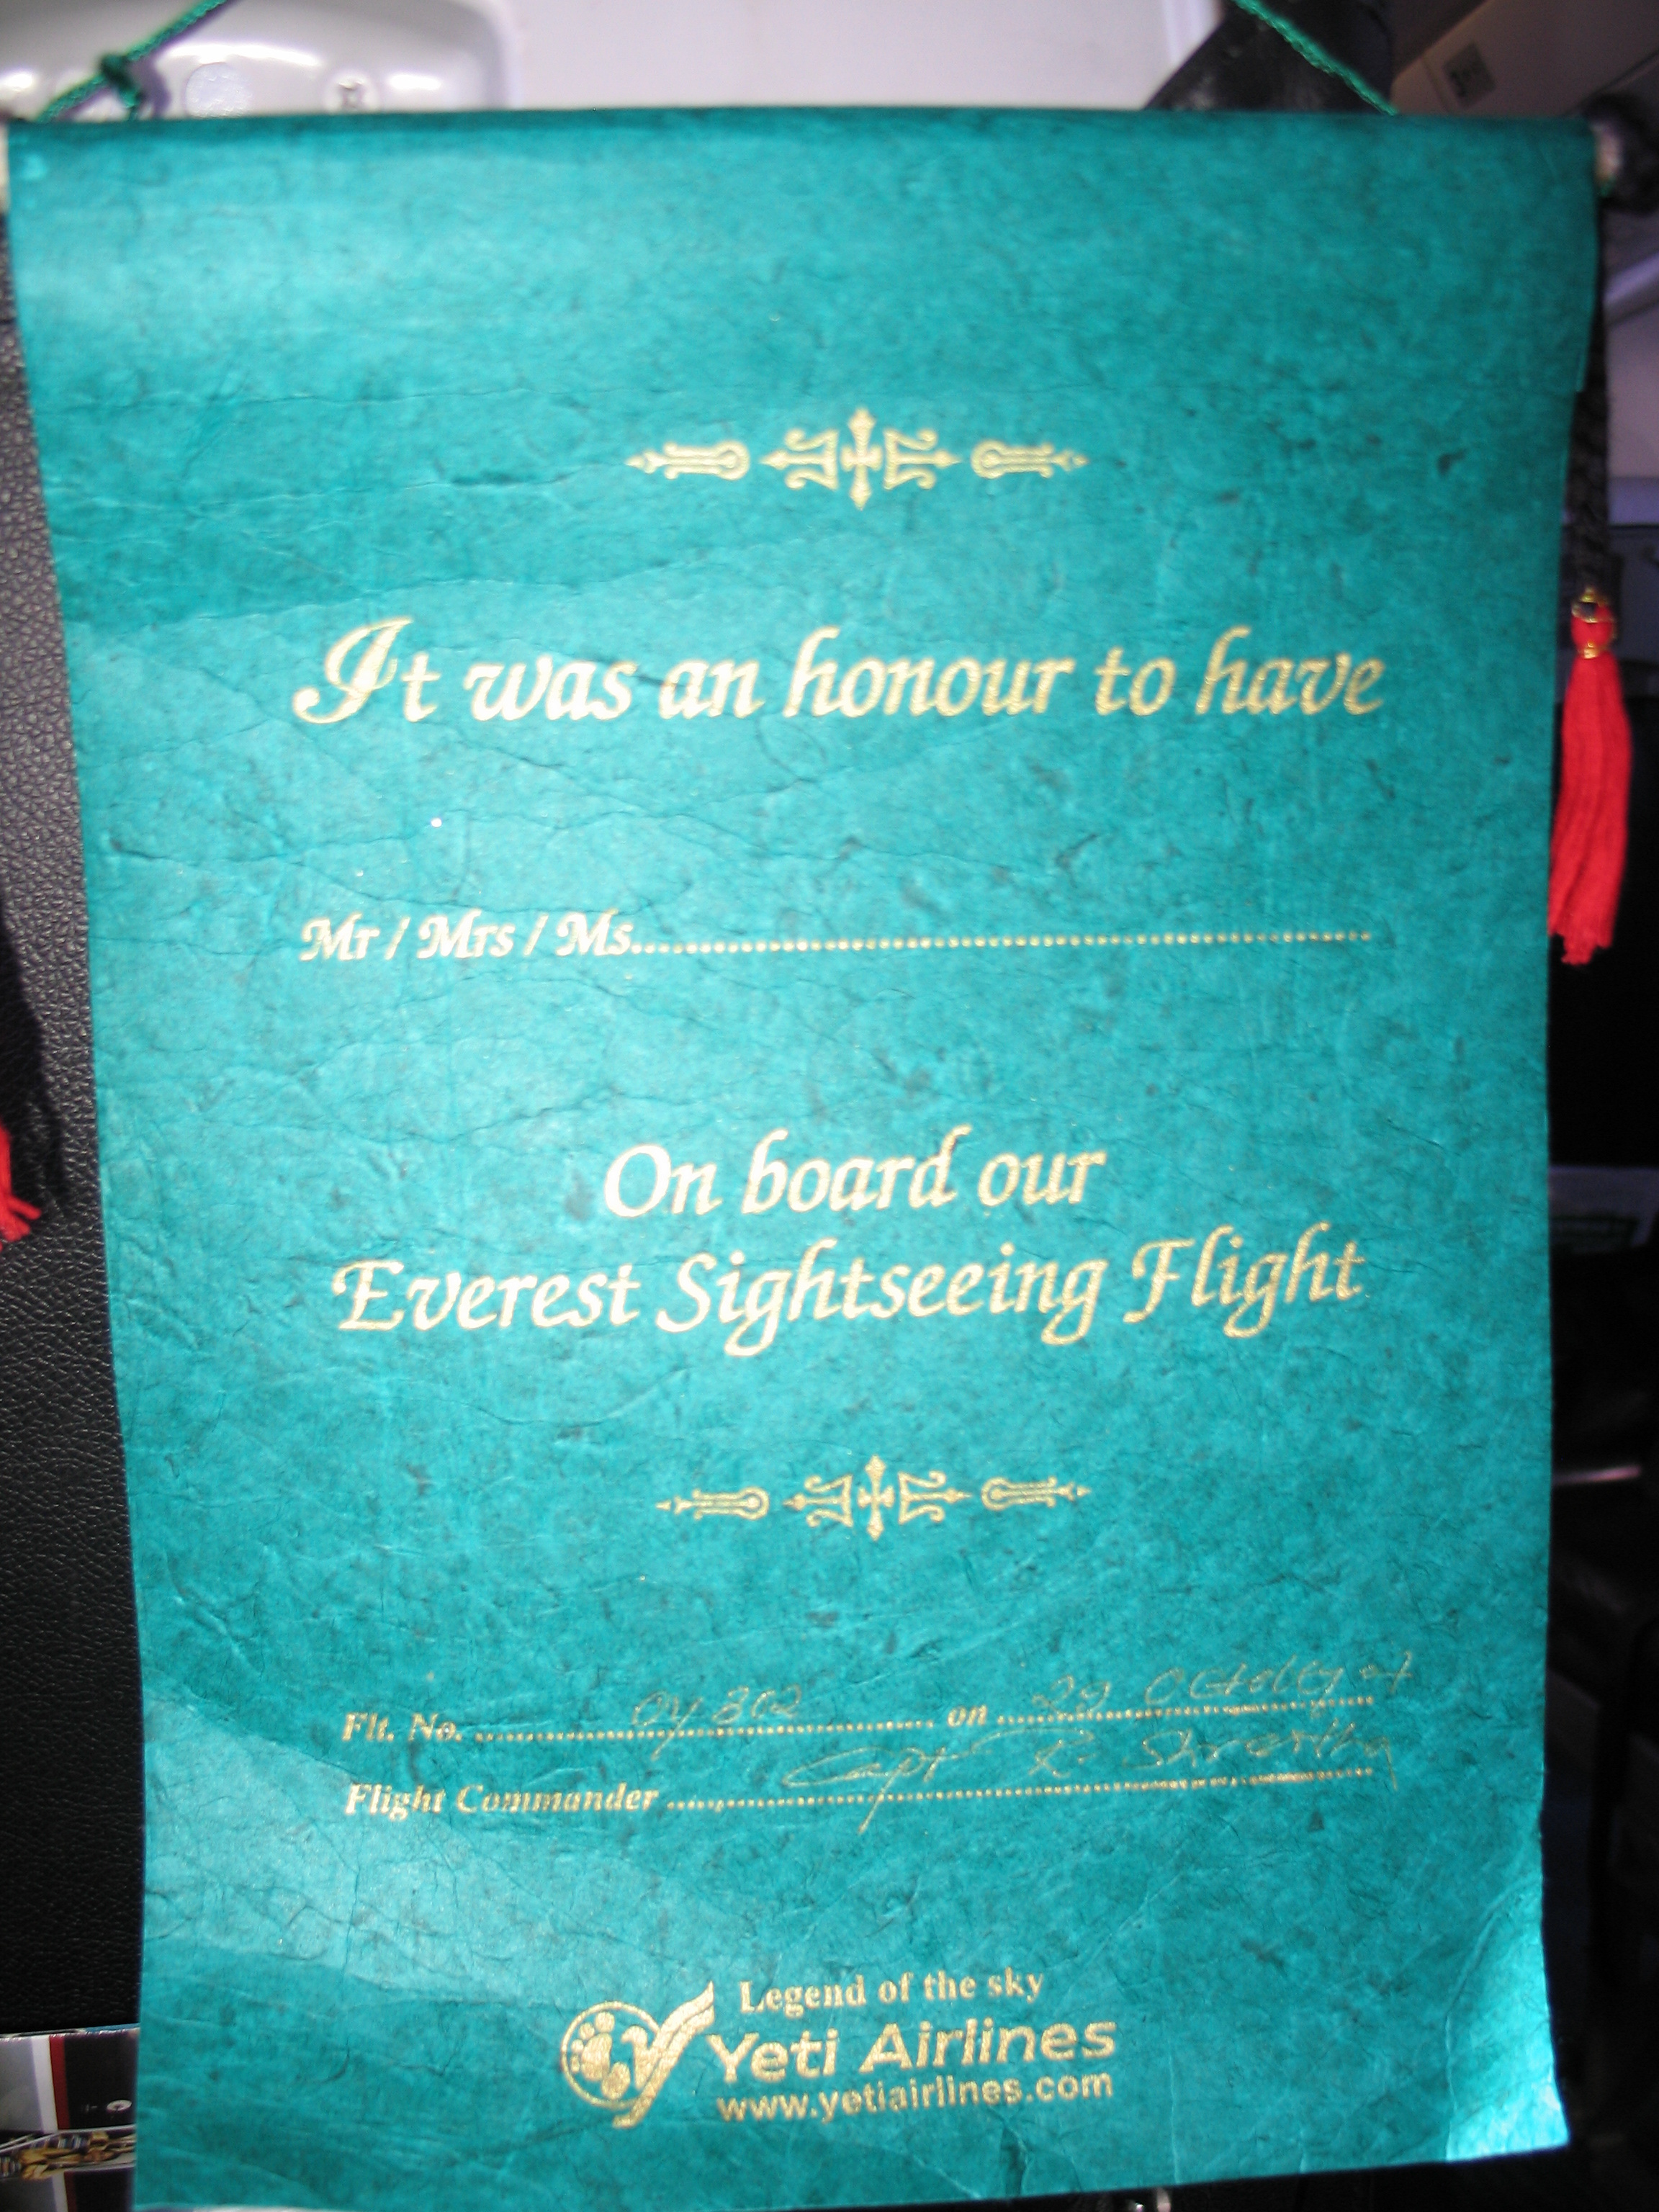 It was an honour to have
Mr / Mrs / Ms................................................................
On board our
Everest Sightseeing Flight
Flt. No. .............OY 802............. on ....29 October 07....
Flight Commander ............Capt R. Shrestha............
Legend of the sky
Yeti Airlines
www.yetiairlines.com